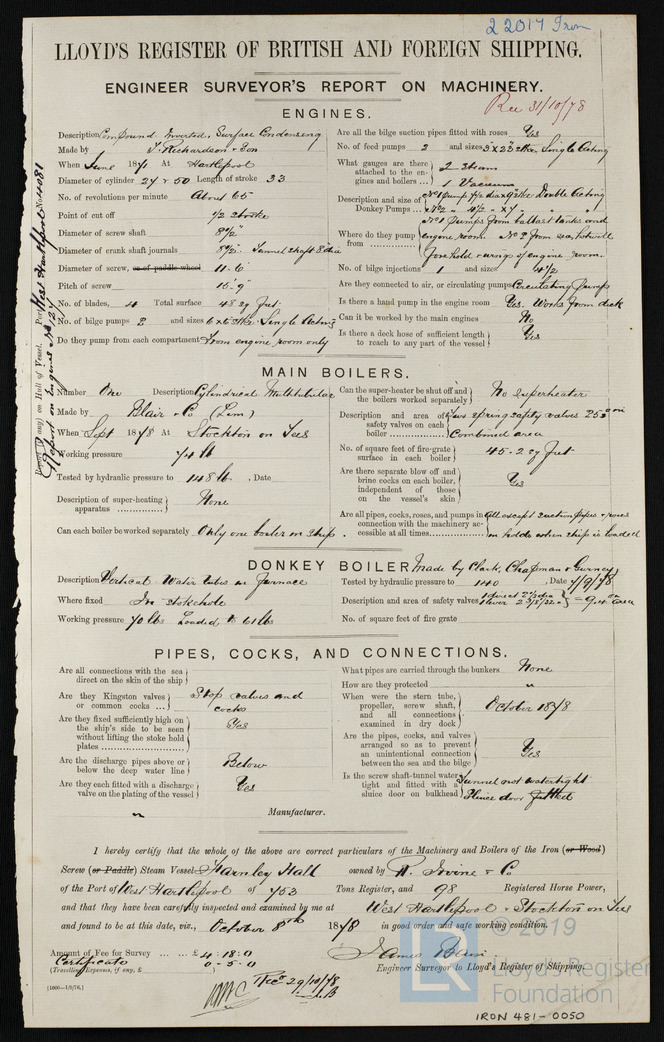 22017 Iron
LLOYD'S REGISTER OF BRITISH AND FOREIGN SHIPPING.
ENGINEER SURVEYOR'S REPORT ON MACHINERY.
Rec 31/10/78
ENGINES.
Description Compound Inverted, Surface Condensing
Made by T. Richardson & Son
When June 1871 At Hartlepool
Diameter of cylinder 27 & 50 Length of stroke 33
No. of revolutions per minute About 65
Point of cut off 1/2 stroke
Diameter of screw shaft
Diameter of crank shaft journals Tunnel shaft
Diameter of screw, or of paddle wheel 11.6
Pitch of screw 15.9
No. of blades, 4 Total surface 48 sq feet
No. of bilge pumps 2 and sizes Single Acting
Do they pump from each compartment From engine room only
Are all the bilge suction pipes fitted with roses Yes
No. of feed pumps 2 and sizes Single Acting
What gauges are there attached to the engines and boilers ... 2 Steam
1 Vacuum
Description and size of Donkey Pumps ... Double Acting
Where do they pump from ... No 1 Pumps from ballast tanks and
engine room. No 2 from sea, hotwell
forehold & wings of engine room.
No. of bilge injections 1 and sizes 4 1/2
Are they connected to air, or circulating pumps Circulating Pump
Is there a hand pump in the engine room Yes. Works from deck
Can it be worked by the main engines No
Is there a deck hose of sufficient length to reach to any part of the vessel Yes
Report (if any) on Hull of Vessel. Port West Hartlepool No. 4081
Report on Engines No
MAIN BOILERS.
Number One Description Cylindrical Multitubular
Made by Blair & Co (Lim)
When Sept 1878 At Stockton on Tees
Working pressure 74 lb
Tested by hydraulic pressure to 148 lb. , Date
Description of super-heating apparatus ... None
Can each boiler be worked separately Only one boiler in ship.
Can the super-heater be shut off and the boilers worked separately No superheater
Description and area of safety valves on each boiler ... Two spring safety valves
Combined area
No. of square feet of fire-grate surface in each boiler 45.2 sq feet
Are there separate blow off and brine cocks on each boiler, independent of those on the vessel's skin Yes
Are all pipes, cocks, roses, and pumps in connection with the machinery accessible at all times... All except suction pipes & roses
in holds when ship is loaded
DONKEY BOILER Made by Clark, Chapman & Gurney
Description Vertical Water tubes in furnace
Where fixed In stokehole
Working pressure 70 lbs Loaded to 61 lbs
Tested by hydraulic pressure to 140 , Date 7/9/78
Description and area of safety valves
No. of square feet of fire grate
PIPES, COCKS, AND CONNECTIONS.
Are all connections with the sea direct on the skin of the ship
Are they Kingston valves or common cocks ... Stop valves and
cocks
Are they fixed sufficiently high on the ship's side to be seen without lifting the stoke hold plates ... Yes
Are the discharge pipes above or below the deep water line Below
Are they each fitted with a discharge valve on the plating of the vessel Yes
What pipes are carried through the bunkers None
How are they protected "
When were the stern tube, propeller, screw shaft, and all connections examined in dry dock October 1878
Are the pipes, cocks, and valves arranged so as to prevent an unintentional connection between the sea and the bilge Yes
Is the screw shaft-tunnel water tight and fitted with a sluice door on bulkhead Tunnel not watertight
Sluice door fitted
" Manufacturer.
I hereby certify that the whole of the above are correct particulars of the Machinery and Boilers of the Iron (or Wood)
Screw (or Paddle) Steam Vessel Farnley Hall owned by R. Irvine & Co
of the Port of West Hartlepool of 753 Tons Register, and 98 Registered Horse Power,
and that they have been carefully inspected and examined by me at West Hartlepool & Stockton on Tees
and found to be at this date, viz., October 8th 1878 in good order and safe working condition.
Amount of Fee for Survey ... £4:18:0
Certificate 0-5-0
(Travelling Expenses, if any, £ )
James Bain
Engineer Surveyor to Lloyd's Register of Shipping.
Rec 29/10/78
J.B
(1000—1/9/76.)
© 2019
LR
Lloyd's Register
Foundation
IRON 481-0050